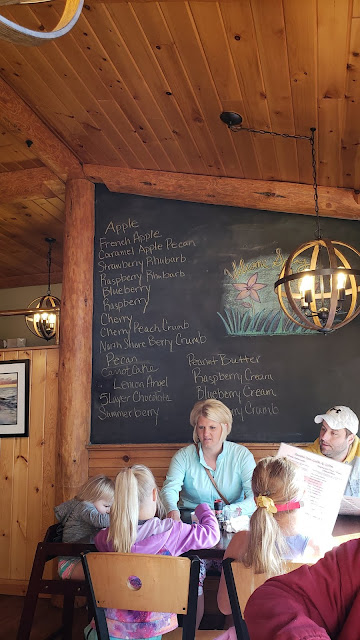 Apple
French Apple
Caramel Apple Pecan
Strawberry Rhubarb
Raspberry Rhubarb
Blueberry
Raspberry
Cherry
Cherry Peach Crumb
North Shore Berry Crumb
Pecan
Carrot Cake
Lemon Angel
5 Layer Chocolate
Summerberry
Peanut Butter
Raspberry Cream
Blueberry Cream
Crumb